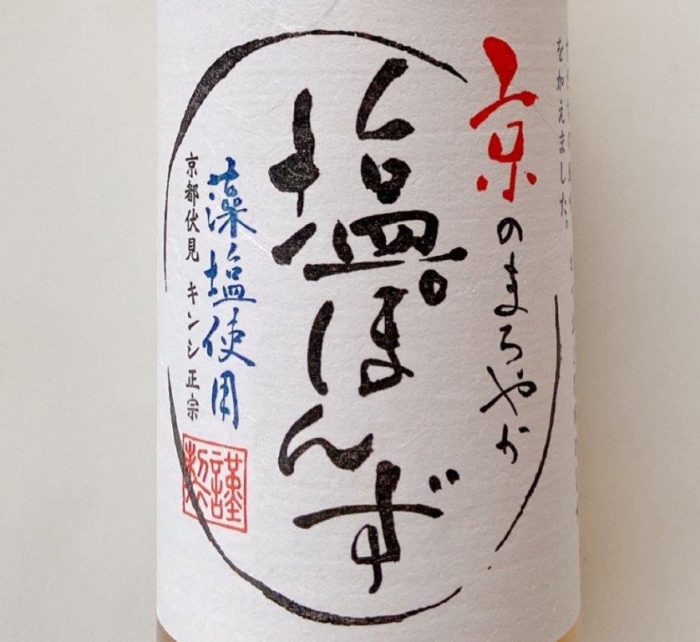 を加えました。
京のまろやか
塩ぽんず
藻塩使用
京都伏見 キンシ正宗
謹製